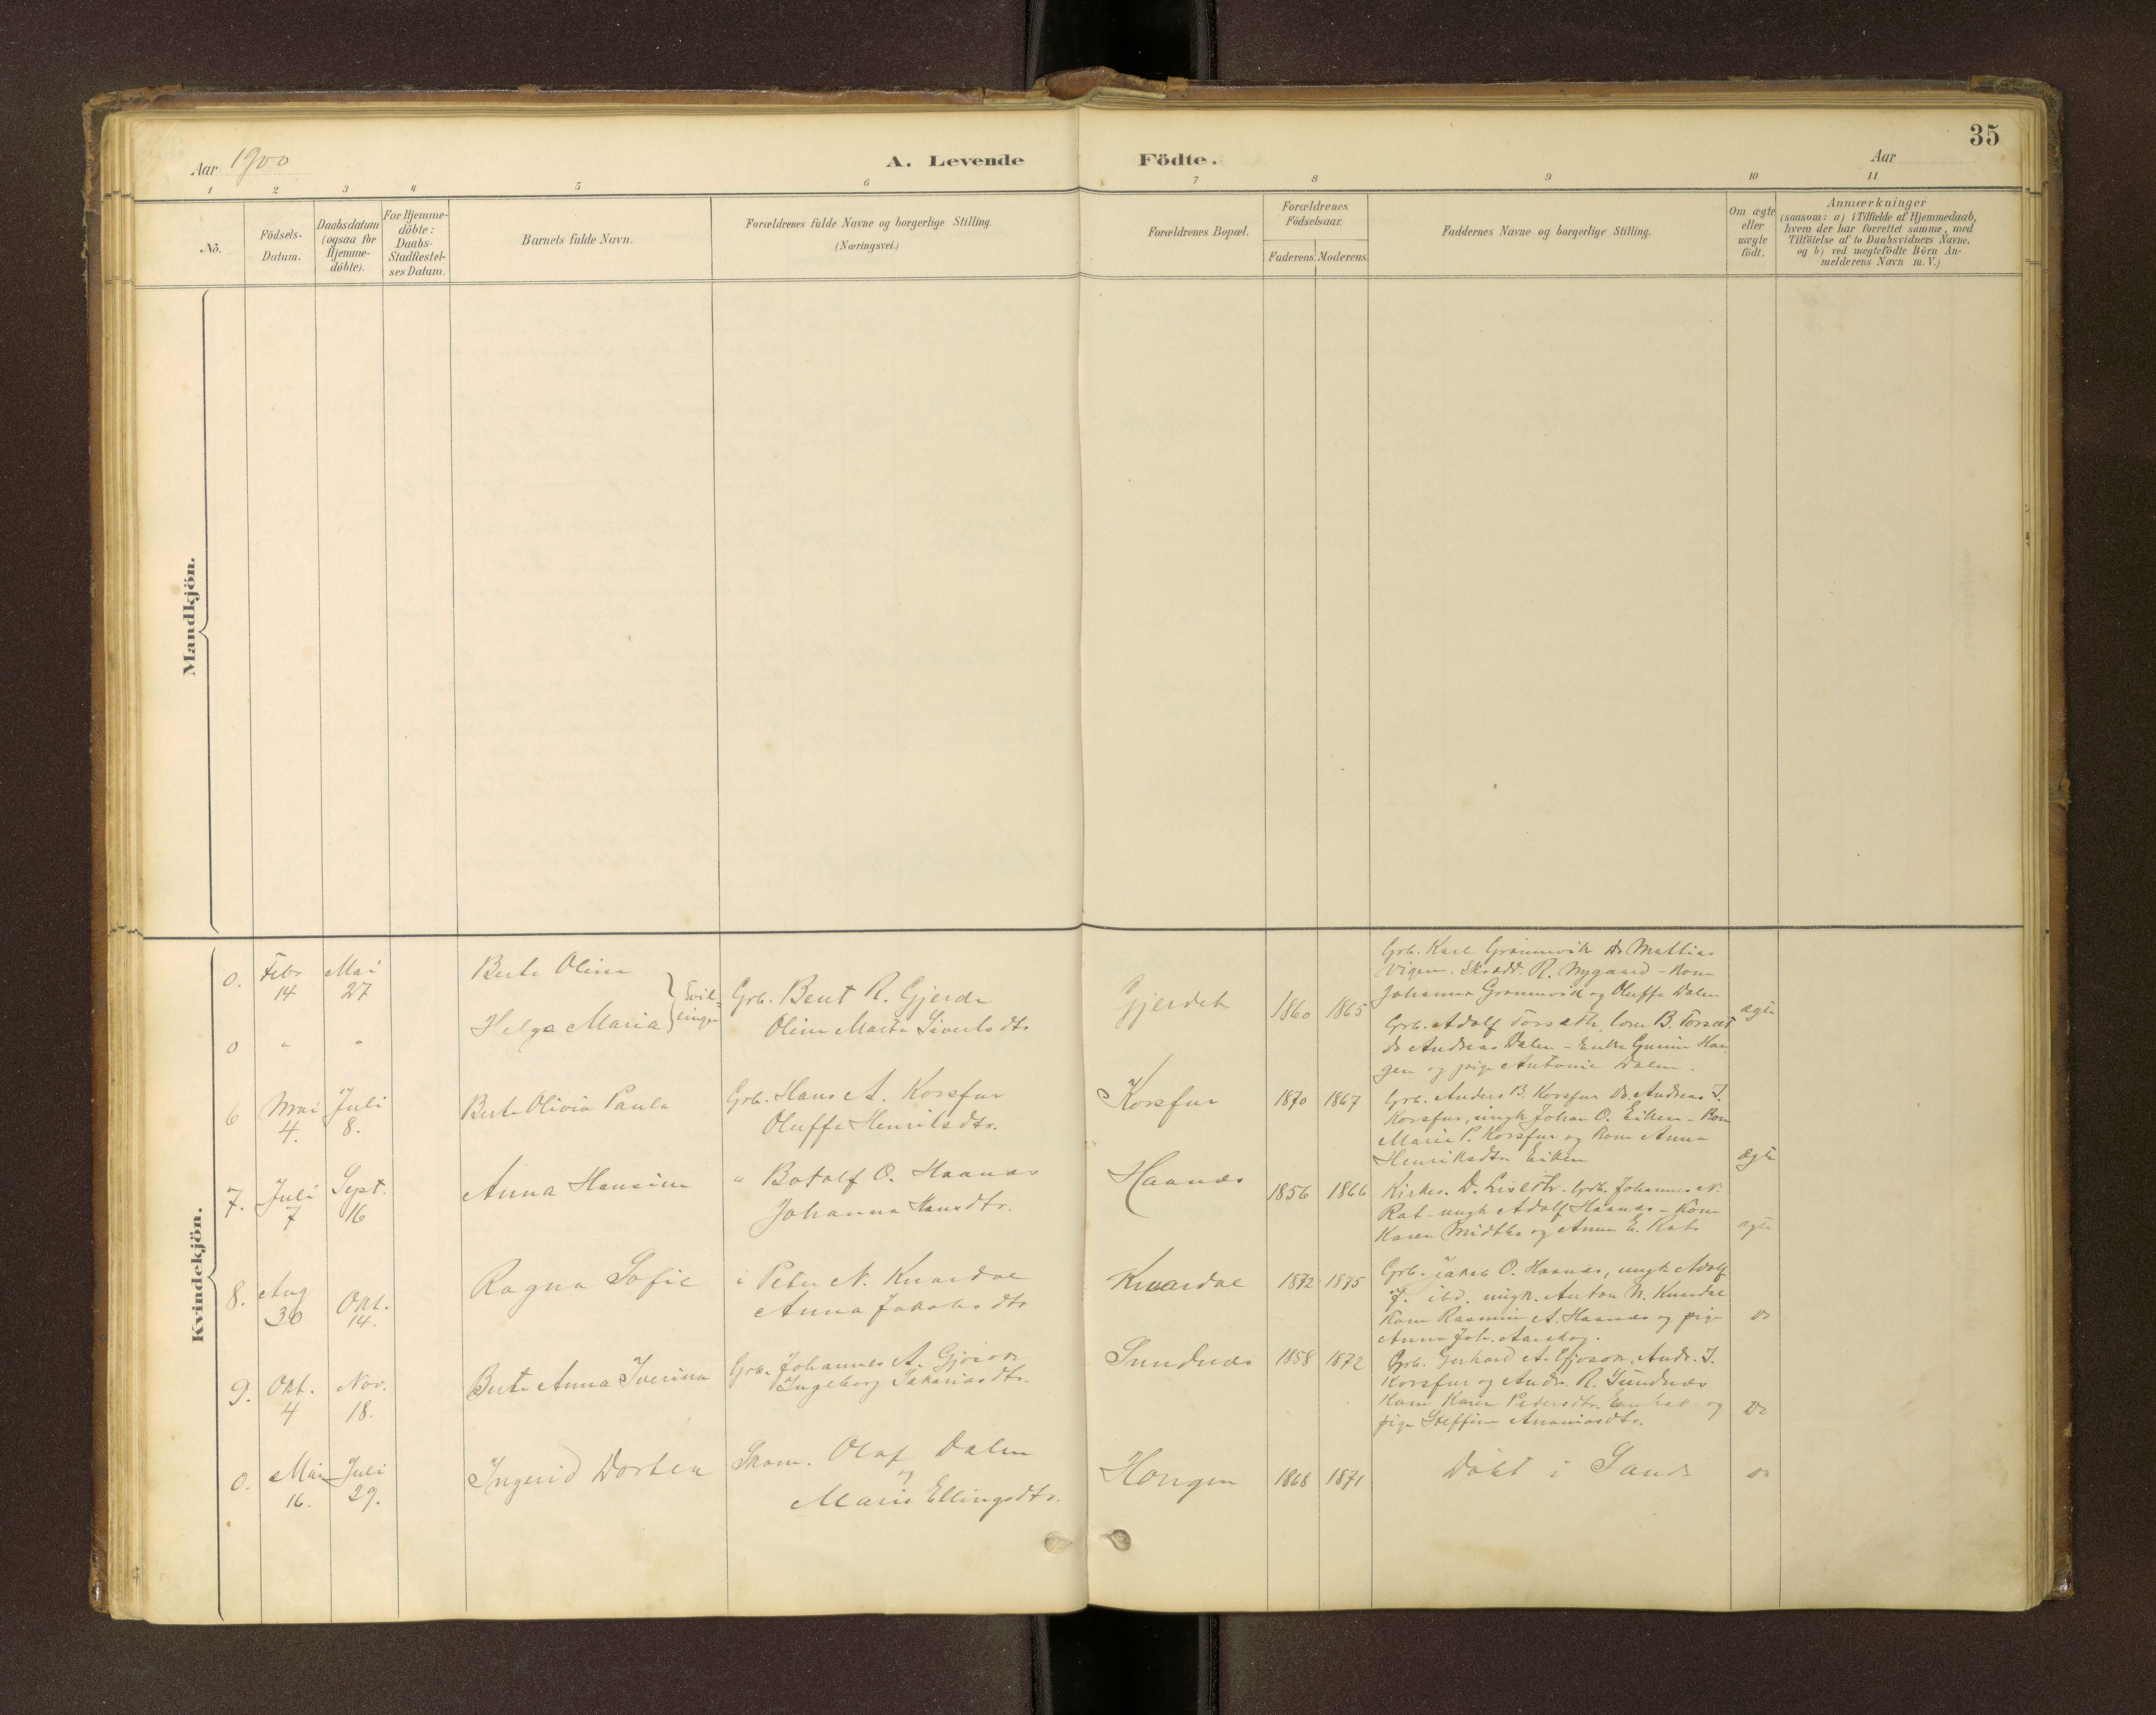 35
Aar 1900
A. Levende Födte.
Aar
1 2 3 4 5 6 7 8 9 10 11
No.
Födsels-
Datum.
Daabsdatum
(ogsaa for
Hjemme-
döbte).
For Hjemme-
döbte:
Daabs-
Stadfæstel-
ses Datum.
Barnets fulde Navn.
Forældrenes fulde Navne og borgerlige Stilling.
(Næringsvei.)
Forældrenes Bopæl.
Forældrenes
Födselsaar.
Faderens. Moderens.
Faddernes Navne og borgerlige Stilling.
Om ægte
eller
uægte
födt.
Anmærkninger
(saasom: a) i Tilfælde af Hjemmedaab,
hvem der har forrettet samme, med
Tilföielse af to Daabsvidners Navne,
og b) ved uægtefödte Börn An-
melderens Navn m.V.)
Mandkjön.
Kvindekjön.
0. Febr 14 Mai 27 Berte Oline
0 " " Helga Maria } Tvil=
linger
Grb. Bent R. Gjerde
Oline Marta Sivertsdtr
Gjerdet 1860 1865
Grb. Karl Grønnevik Do Mattias
Vigen. Skrædd. R. Nygaard - Kone
Johanna Grønnevik og Oluffa Dalen
Grb. Adolf Torsæth, Lom B. Torsæt
do Andreas Dalen - Enke Gurine Hau
gen og pige Antonie Dalen.
ægte
6 Mai 4. Juli 8. Berte Olivia Paula
Grb. Hans A. Korsfur
Oluffe Henriksdtr.
Korsfur 1870 1867
Grb. Anders B. Korsfur Do. Andreas J.
Korsfur, ungk Johan O. Eiken - Kone
Marie P. Korsfur og Kone Anna
Henriksdtr Eiken
ægte
7. Juli 7 Sept. 16 Anna Hansine
" Botolf O. Haanæs
Johanna Hansdtr.
Haanæs 1856 1866
Kirkes. D. Liseth. Grb. Johannes N.
Rat - ungk Adolf Haanæs - Kone
Karen Midtbø og Anna E. Rat
ægte
8. Aug 30 Okt. 14. Ragna Sofie
" Peter N. Kvardal
Anna Jakobsdtr
Kvardal 1872 1875
Grb. Jakob O. Haanæs, ungk Adolf
J. ibd. ungk. Anton N. Kvardal
Kone Rasmine A. Haanæs og pige
Anna Joh. Aarskog.
Do
9. Okt. 4 Nov. 18. Berte Anna Iverine
Grb. Johannes A. Gjøson
Ingeborg Zakariasdtr.
Sundnæs 1858 1872
Grb. Gerhard A. Gjøson, Andr. J.
Korsfur og Andr. R. Sundnæs
Kone Karen Pedersdtr. og
pige Steffine Ananiasdtr.
Do
0. Mai 16. Juli 29. Ingerid Dortea
Skom. Olaf Dalen
og
Marie Ellingsdtr.
Haugen 1868 1871
Døbt i Sande
Do